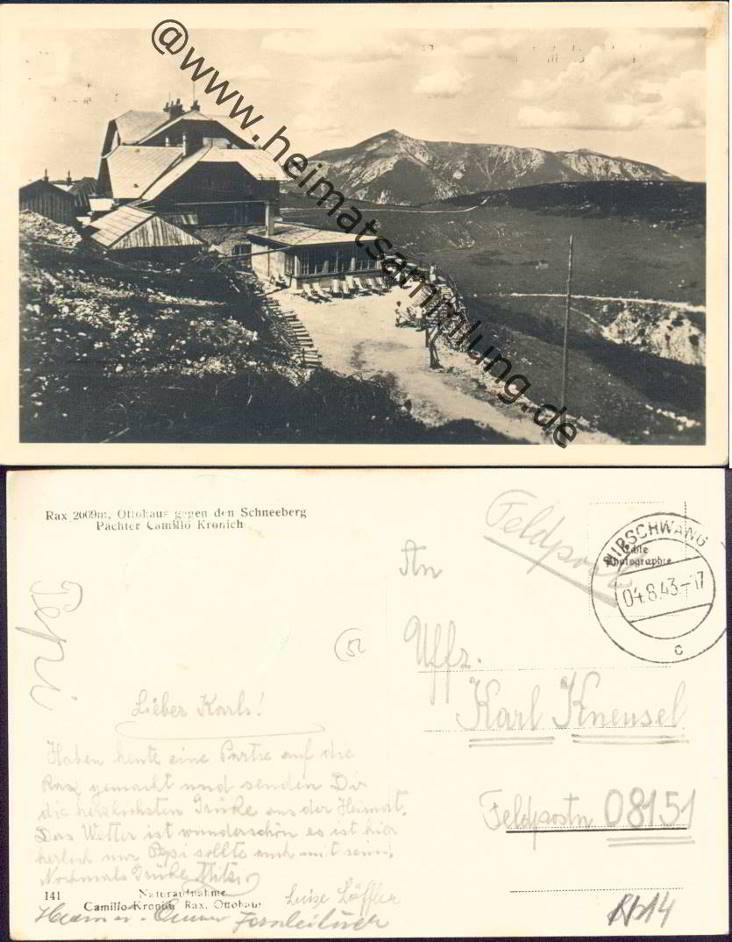 @www.heimatsammlung.de
Rax 2009m, Ottohaus gegen den Schneeberg
Pächter Camillo Kronich
Feldpost
Echte
Photographie
HIRSCHWANG
04.8.43.-17
c
Pepi
52
An
Uffz.
Karl Kneusel
Feldpostn 08151
Lieber Karl!
Haben heute eine Partie auf die
Rax gemacht und senden Dir
die herzlichsten Grüße aus der Heimat.
Das Wetter ist wunderschön es ist hier
herlich nur Pepi sollte auch mit sein.
Nochmals Grüße
Luise Löffler
141
Naturaufnahme
Camillo Kronich Rax, Ottohaus